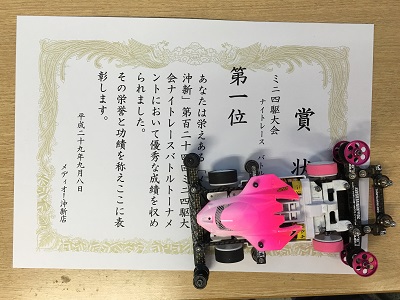 賞 状
ミニ四駆大会
ナイトレース バト
第一位
あなたは栄えある
沖新」第百二十四回ミニ四駆大
会ナイトレースバトルトーナメ
ントにおいて優秀な成績を収め
られました。
その栄誉と功績を称えここに表
彰します。
平成二十九年九月八日
メディオ!沖新店